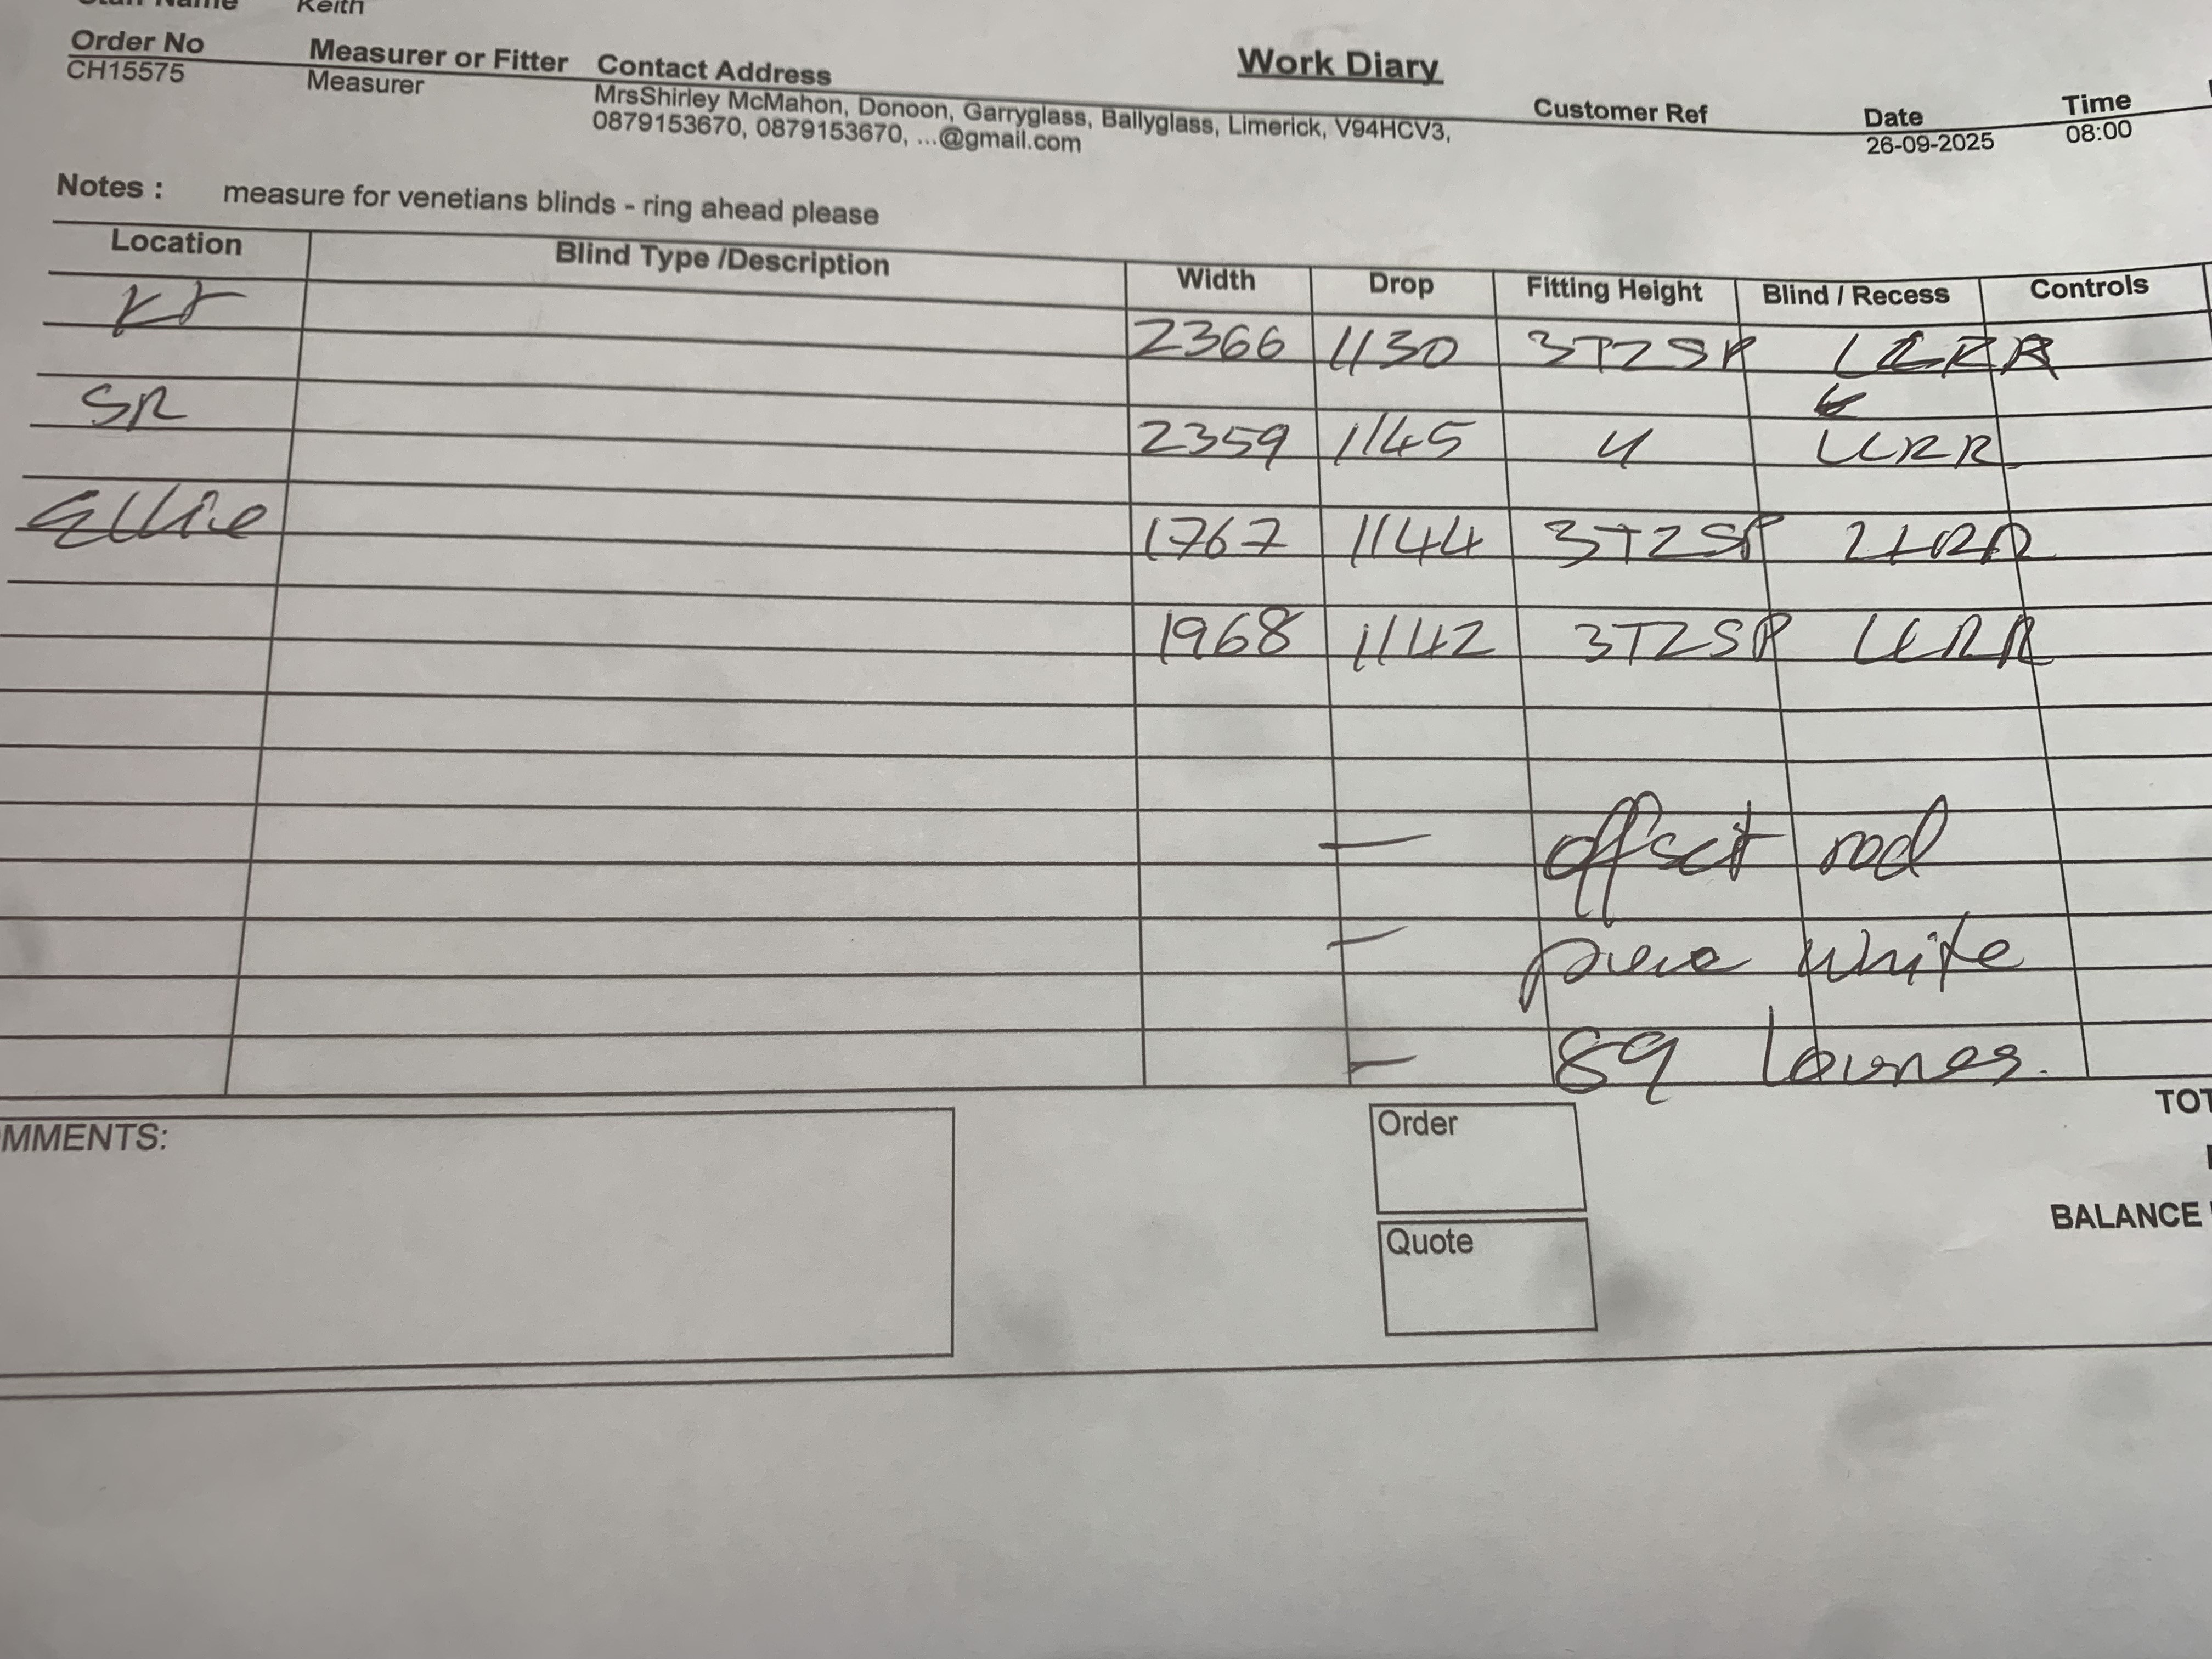 Staff Name Keith
Work Diary
Order No Measurer or Fitter Contact Address Customer Ref Date Time
CH15575 Measurer MrsShirley McMahon, Donoon, Garryglass, Ballyglass, Limerick, V94HCV3, 26-09-2025 08:00
0879153670, 0879153670, ...@gmail.com
Notes : measure for venetians blinds - ring ahead please
Location Blind Type /Description Width Drop Fitting Height Blind / Recess Controls
KT 2366 1130 3TZSP LLRR
SR 2359 1145 LLRR
Ellie 1767 1144 3TZSP LLRR
1968 1142 3TZSP LLRR
— offset rod
— pure white
— 89 Louvres.
TOT
MMENTS:
Order
BALANCE
Quote